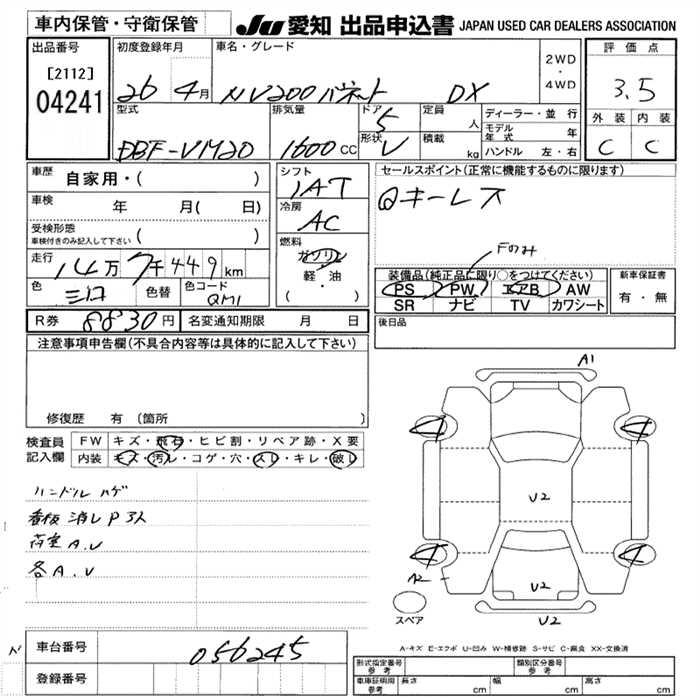 車内保管・守衛保管
JU 愛知 出品申込書 JAPAN USED CAR DEALERS ASSOCIATION
出品番号
[2112]
04241
初度登録年月
26 4月
車名・グレード
NV200バネット DX
2WD
・
4WD
評価点
3.5
外装 内装
C C
型式
DBF-VM20
排気量
1600 CC
ドア
5
形状
V
定員
人
積載
kg
ディーラー・並行
モデル年式 年
ハンドル 左・右
車歴
自家用・( )
車検
年 月( 日)
受検形態
車検付きのみ記入して下さい ( )
走行
14万7千449km
色
シロ
色替
色コード
QM1
シフト
IAT
冷房
AC
燃料
ガソリン
軽・油
( ・ )
セールスポイント(正常に機能するものに限ります)
キーレス
Fのみ
装備品(純正品に限り○をつけてください)
PS PW エアB AW
SR ナビ TV カワシート
新車保証書
有・無
R券 8830円
名変通知期限 月 日
後日品
注意事項申告欄(不具合内容等は具体的に記入して下さい)
修復歴 有 (箇所 )
検査員
記入欄
FW キズ・飛石・ヒビ割・リペア跡・X要
内装 キズ・汚レ・コゲ・穴・スレ・キレ・破レ
ハンドルハゲ
看板消しP3人
荷室A.U
各A.U
A1
4 4
U2
4 4
A2
U2
U2
スペア
A-キズ E-エクボ U-凹み W-補修跡 S-サビ C-腐食 XX-交換済
N
車台番号
056245
登録番号
形式指定番号
参考
類別区分番号
参考
車庫証明用
参考
長さ cm 幅 cm 高さ cm